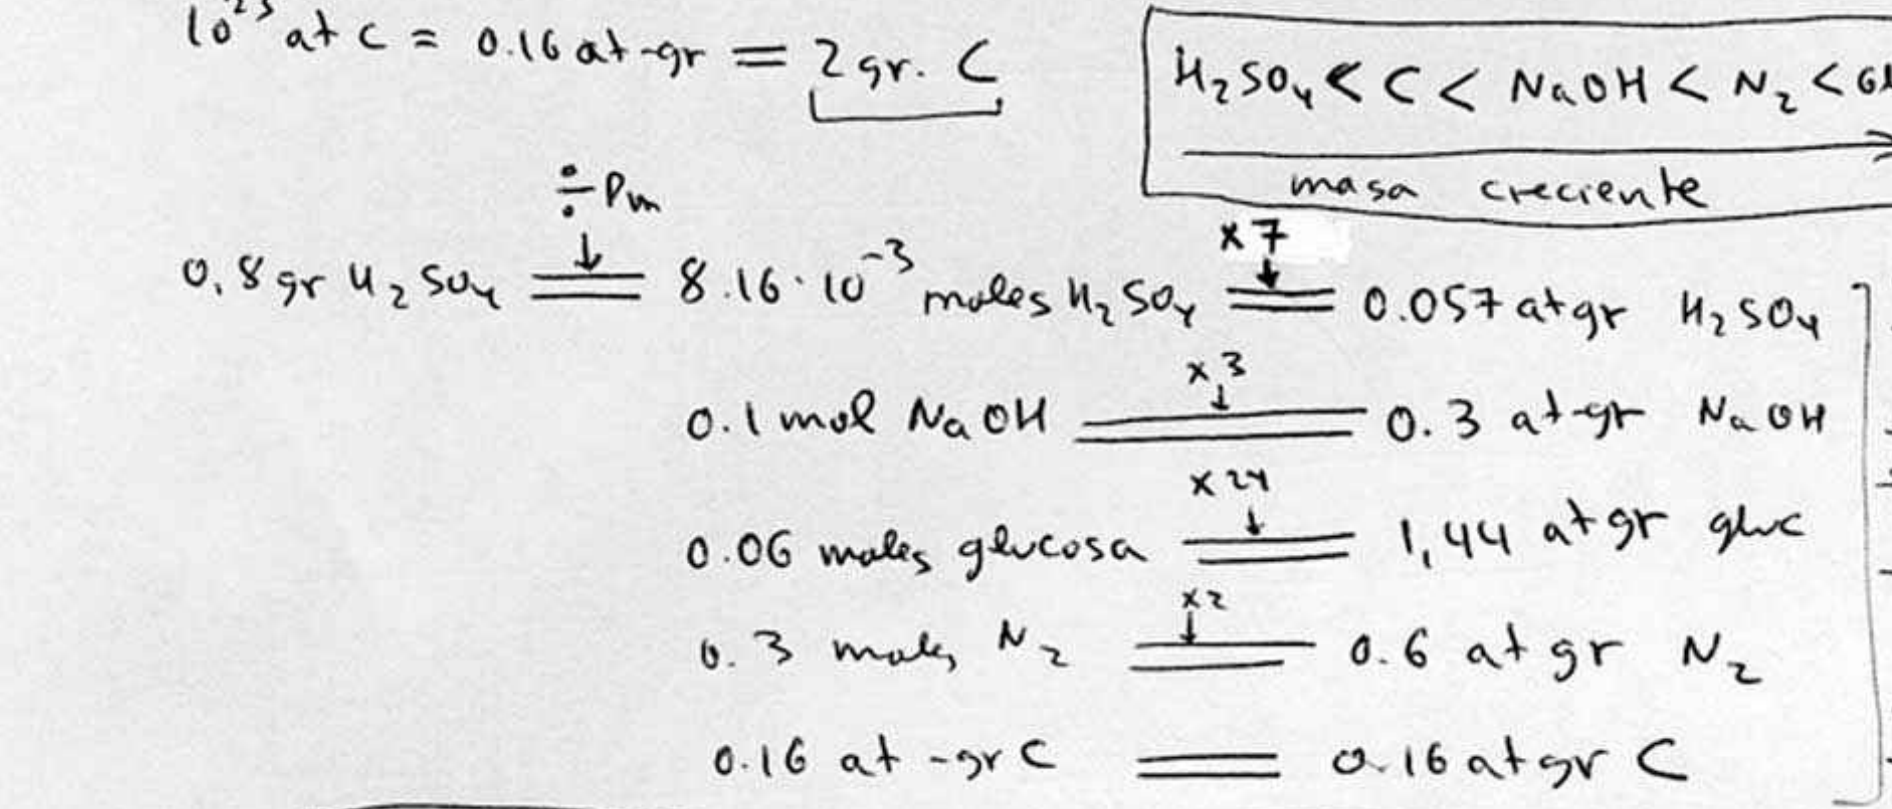 10²³ at C = 0.16 at-gr = 2 gr. C
H₂SO₄ < C < NaOH < N₂ <
masa creciente
÷ Pm
0,8 gr H₂SO₄ = 8.16·10⁻³ moles H₂SO₄ = 0.057 at gr H₂SO₄
x7
x3
0.1 mol NaOH = 0.3 at-gr NaOH
x24
0.06 moles glucosa = 1,44 at gr gluc
x2
0.3 moles N₂ = 0.6 at gr N₂
0.16 at-gr C = 0.16 at gr C